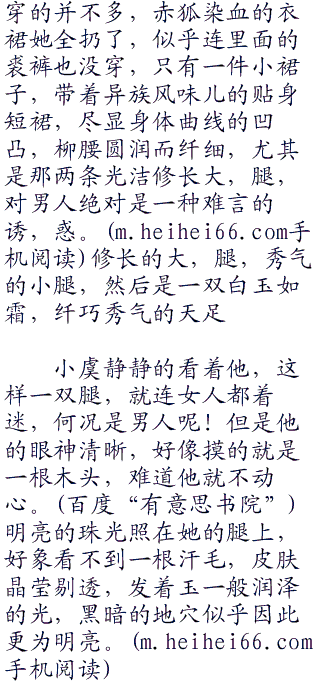 穿的并不多，赤狐染血的衣
裙她全扔了，似乎连里面的
裘裤也没穿，只有一件小裙
子，带着异族风味儿的贴身
短裙，尽显身体曲线的凹
凸，柳腰圆润而纤细，尤其
是那两条光洁修长大，腿，
对男人绝对是一种难言的
诱，惑。(m.heihei66.com手
机阅读)修长的大，腿，秀气
的小腿，然后是一双白玉如
霜，纤巧秀气的天足
小虞静静的看着他，这
样一双腿，就连女人都着
迷，何况是男人呢！但是他
的眼神清晰，好像摸的就是
一根木头，难道他就不动
心。(百度“有意思书院”)
明亮的珠光照在她的腿上，
好象看不到一根汗毛，皮肤
晶莹剔透，发着玉一般润泽
的光，黑暗的地穴似乎因此
更为明亮。(m.heihei66.com
手机阅读)